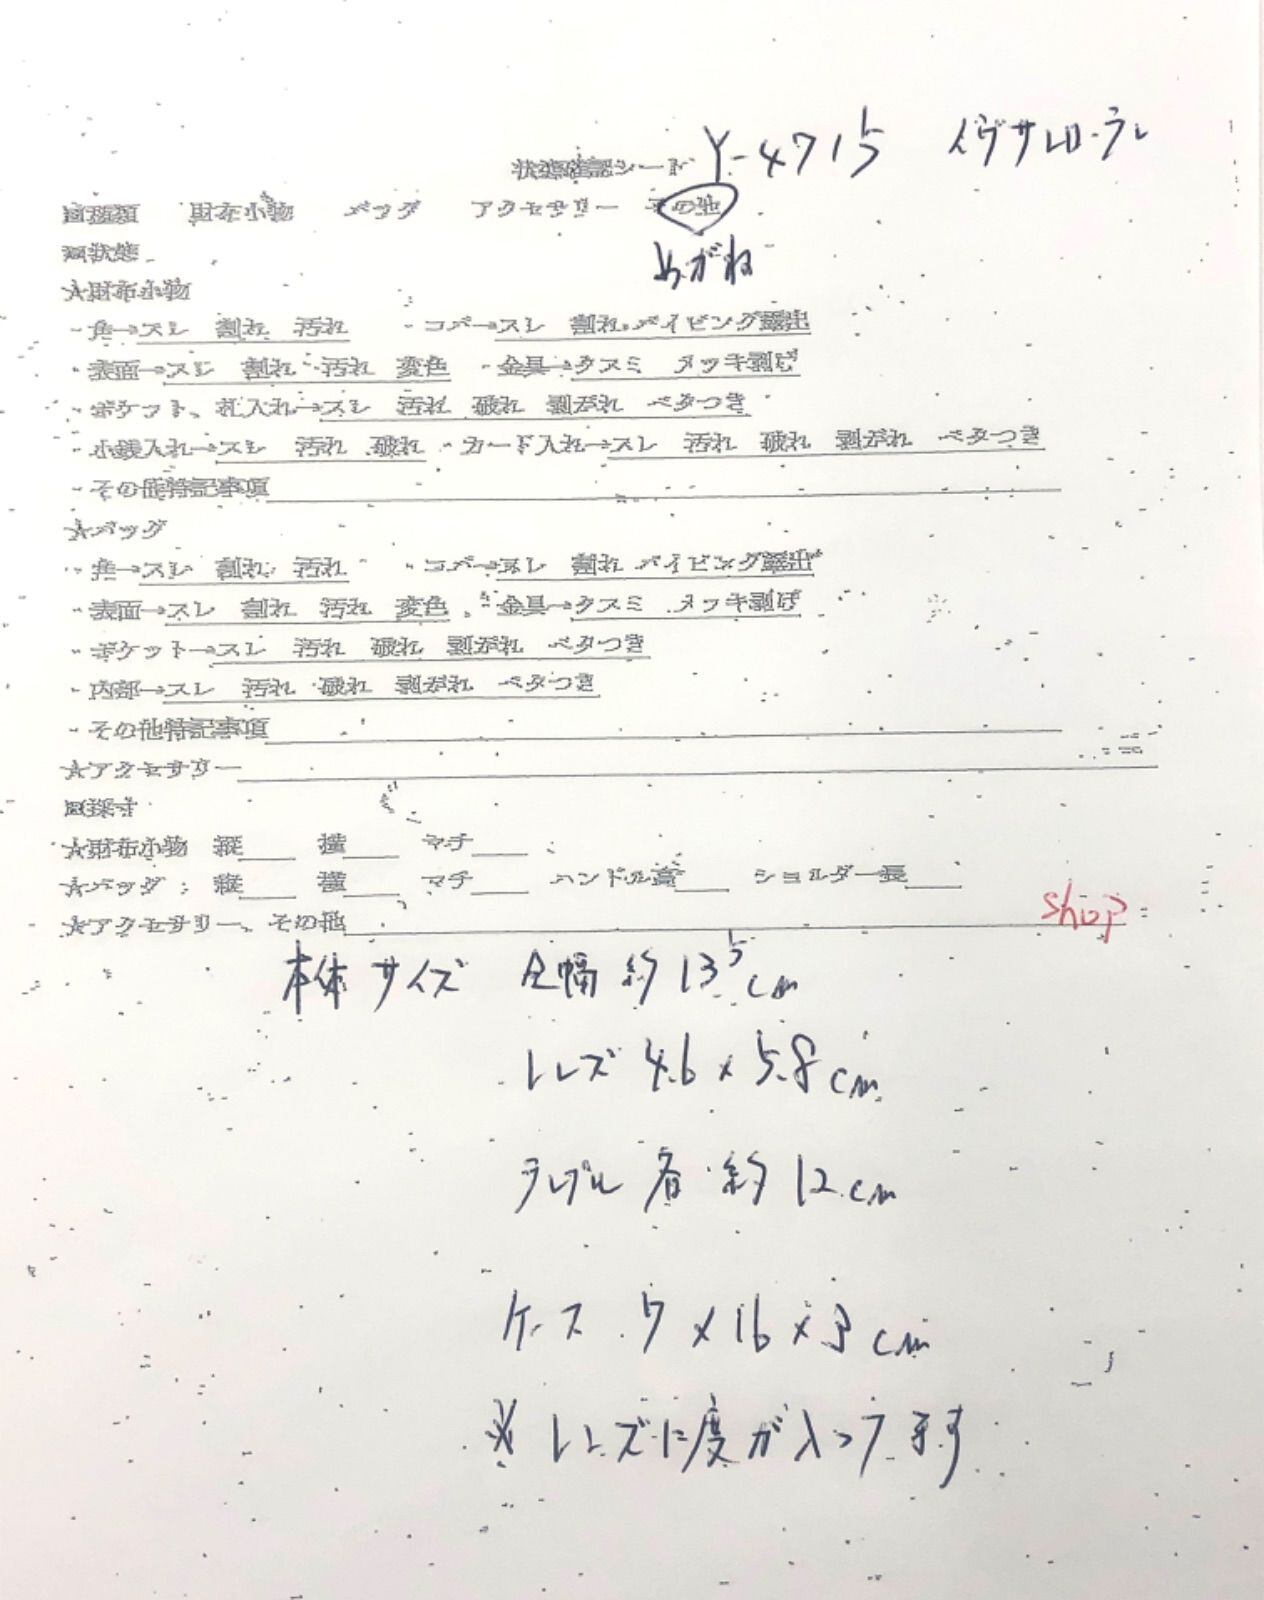 Y-4715 イヴサンローラン
状態確認シート
□種類 財布小物 バッグ アクセサリー その他
めがね
□状態
☆財布小物
・角→スレ 割れ 汚れ ・コバ→スレ 割れ パイピング露出
・表面→スレ 割れ 汚れ 変色 ・金具→クスミ メッキ剥げ
・ポケット、札入れ→スレ 汚れ 破れ 剥がれ ベタつき
・小銭入れ→スレ 汚れ 破れ ・カード入れ→スレ 汚れ 破れ 剥がれ ベタつき
・その他特記事項
☆バッグ
・角→スレ 割れ 汚れ ・コバ→スレ 割れ パイピング露出
・表面→スレ 割れ 汚れ 変色 ・金具→クスミ メッキ剥げ
・ポケット→スレ 汚れ 破れ 剥がれ ベタつき
・内部→スレ 汚れ 破れ 剥がれ ベタつき
・その他特記事項
☆アクセサリー
□採寸
☆財布小物 縦 横 マチ
☆バッグ: 縦 横 マチ ハンドル高 ショルダー長
☆アクセサリー、その他
shop
本体サイズ 全幅 約13.5cm
レンズ 4.6×5.8cm
テンプル 各 約12cm
ケース 7×16×3cm
※レンズに度が入ってます